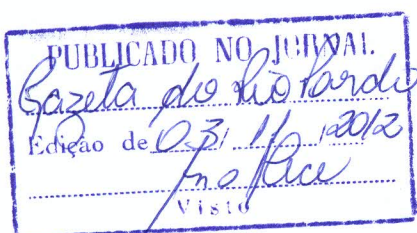 PUBLICADO NO JORNAL
Gazeta do Rio Pardo
Edição de 03/11/2012
Visto